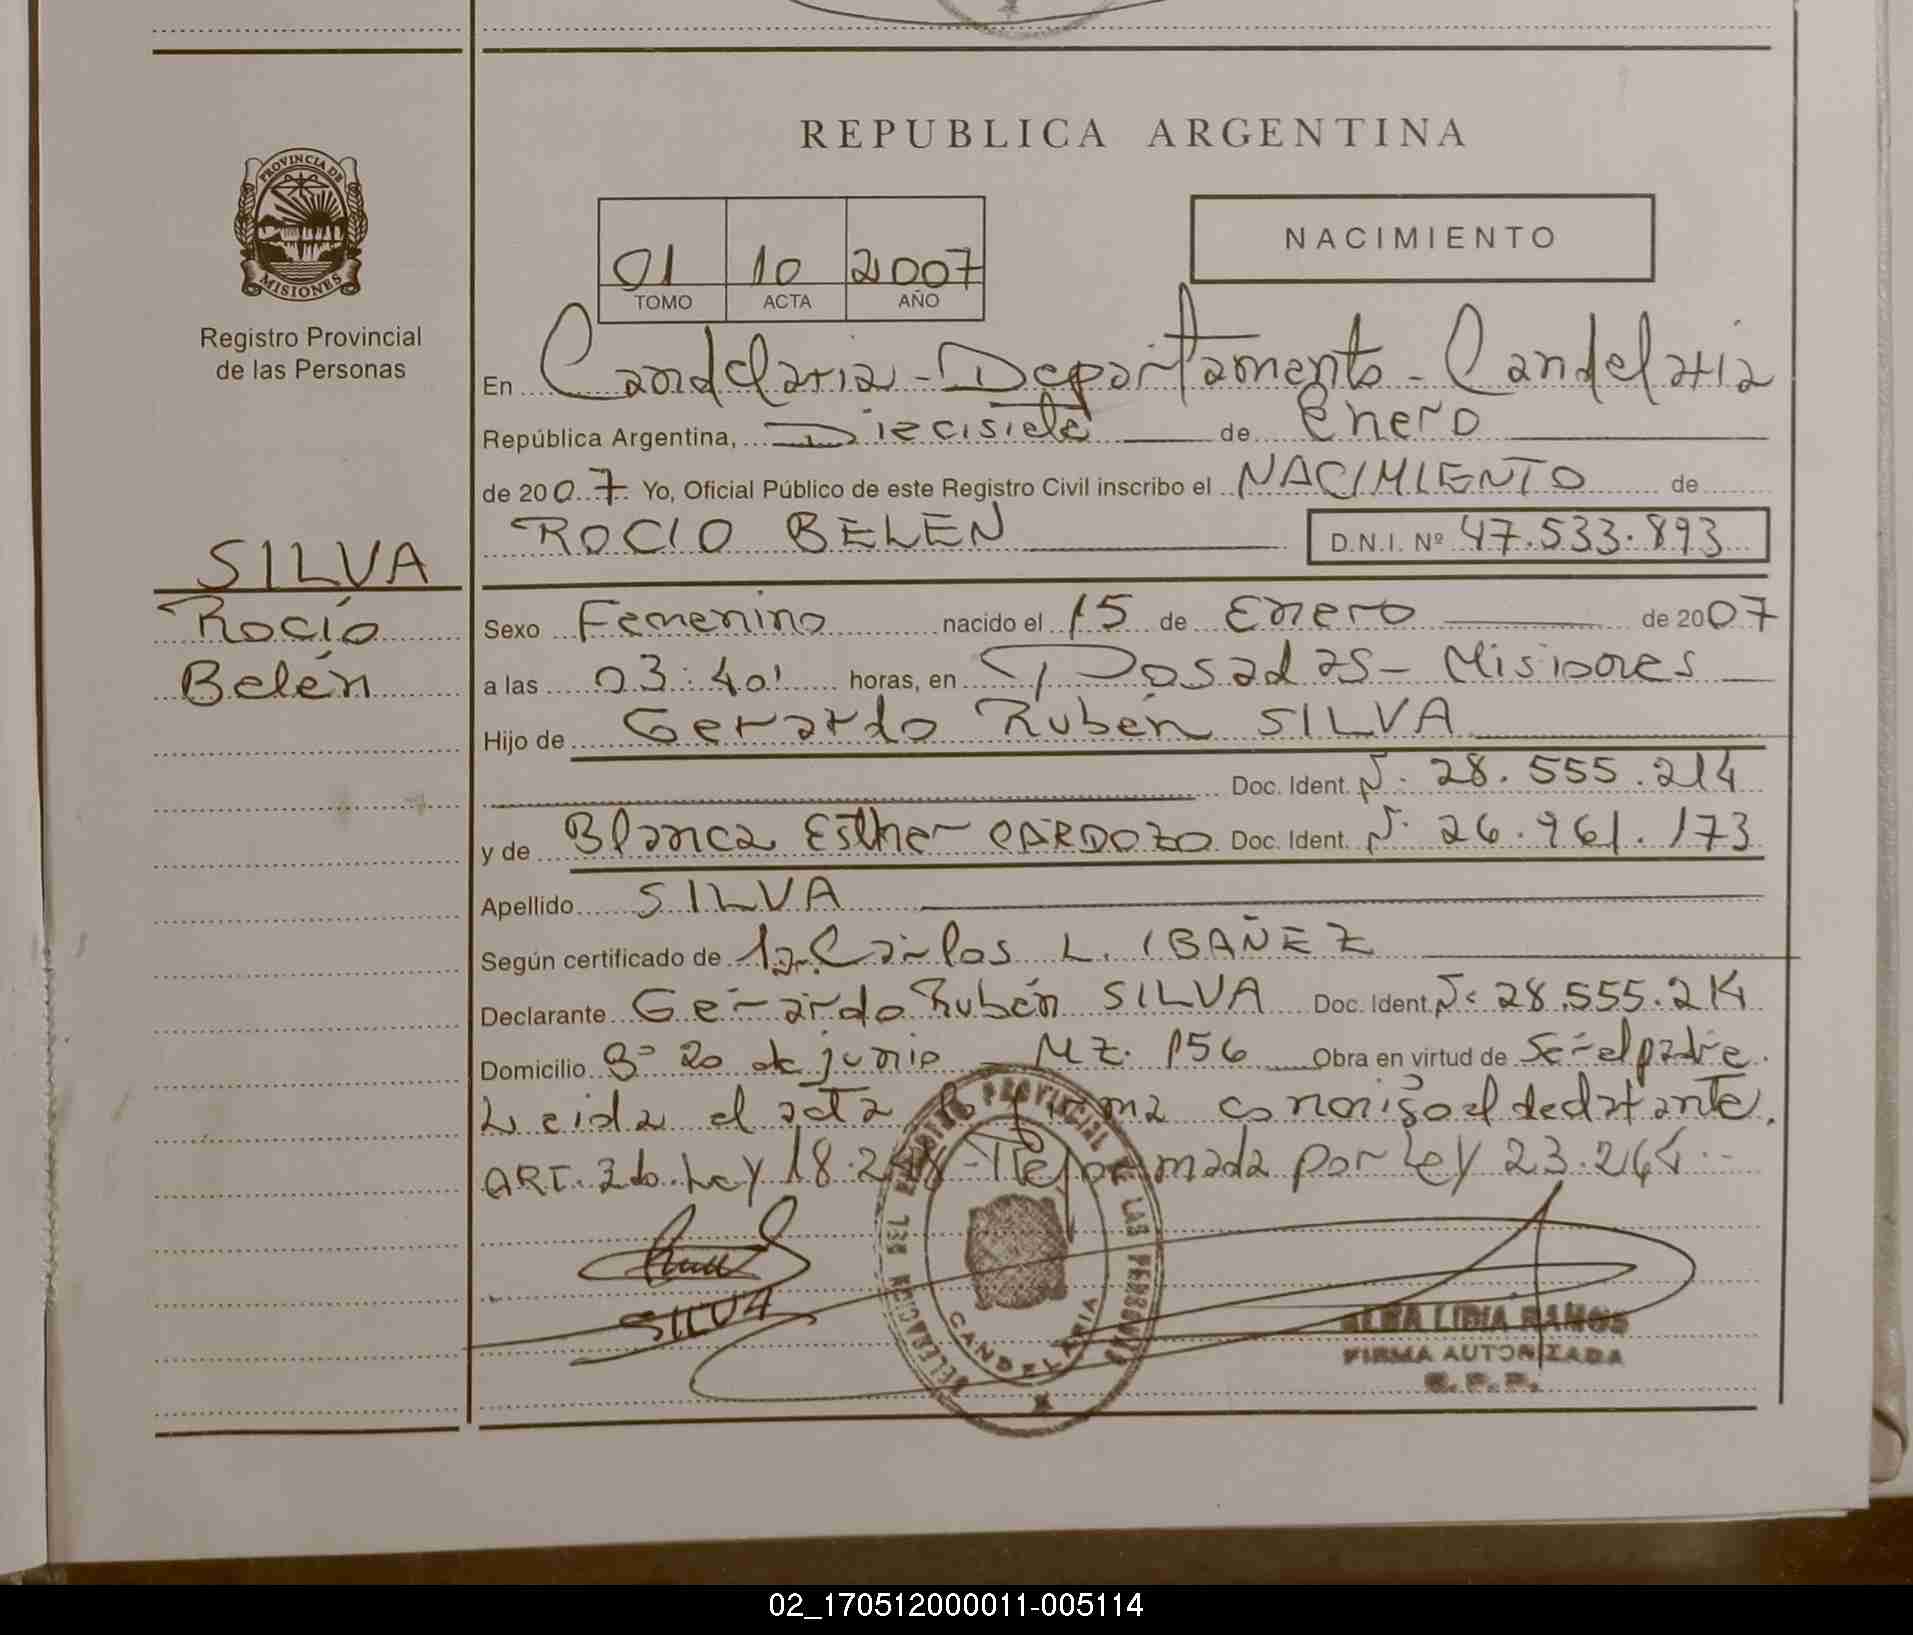 REPUBLICA ARGENTINA
PROVINCIA DE
MISIONES
Registro Provincial
de las Personas
NACIMIENTO
01 10 2007
TOMO ACTA AÑO
En Candelaria - Departamento - Candelaria
República Argentina, Diecisiete de Enero
de 2007 Yo, Oficial Público de este Registro Civil inscribo el NACIMIENTO de
ROCIO BELEN D.N.I. Nº 47.533.893
SILVA
Rocío
Belén
Sexo Femenino nacido el 15 de Enero de 2007
a las 03:40' horas, en Posadas - Misiones
Hijo de Gerardo Rubén SILVA
Doc. Ident. N. 28.555.214
y de Blanca Esther CARDOZO Doc. Ident. N. 26.961.173
Apellido SILVA
Según certificado de Carlos L. IBAÑEZ
Declarante Gerardo Rubén SILVA Doc. Ident. N. 28.555.214
Domicilio Bº 20 de junio - Mz. 156 Obra en virtud de Ser el padre.
Leida el acta la firma conmigo el declarante.
ART. Ley 18.248 - Reformada por Ley 23.264 -
SILVA
REGISTRO PROVINCIAL DE LAS PERSONAS
CANDELARIA
LIDIA RAMOS
FIRMA AUTORIZADA
02_170512000011-005114